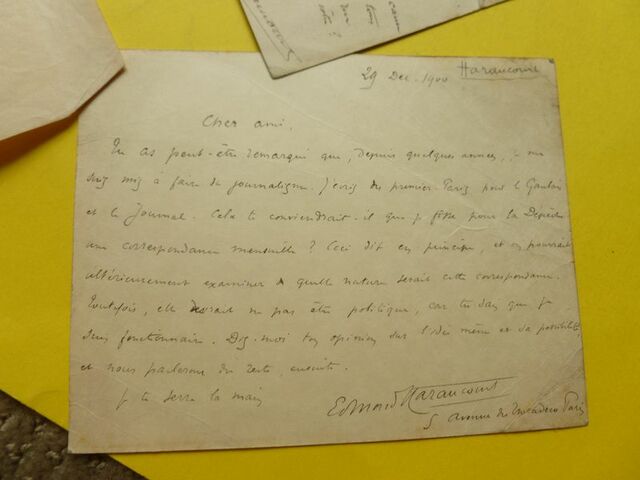 29 Dec. 1900 Haraucourt
Cher ami,
Tu as peut-être remarqué que, depuis quelques années, je me
suis mis à faire du journalisme. J'écris des premier-Paris pour le Gaulois
et le Journal. Cela te conviendrait-il que je fisse pour la Dépêche
une correspondance mensuelle ? Ceci dit en principe, et on pourrait
ultérieurement examiner quelle nature serait cette correspondance.
Toutefois, elle devrait ne pas être politique, car tu sais que je
suis fonctionnaire. Dis-moi ton opinion sur l'idée même et sa possibilité,
et nous parlerons du reste, ensuite.
Je te serre la main
Edmond Haraucourt
5 avenue du Trocadéro Paris